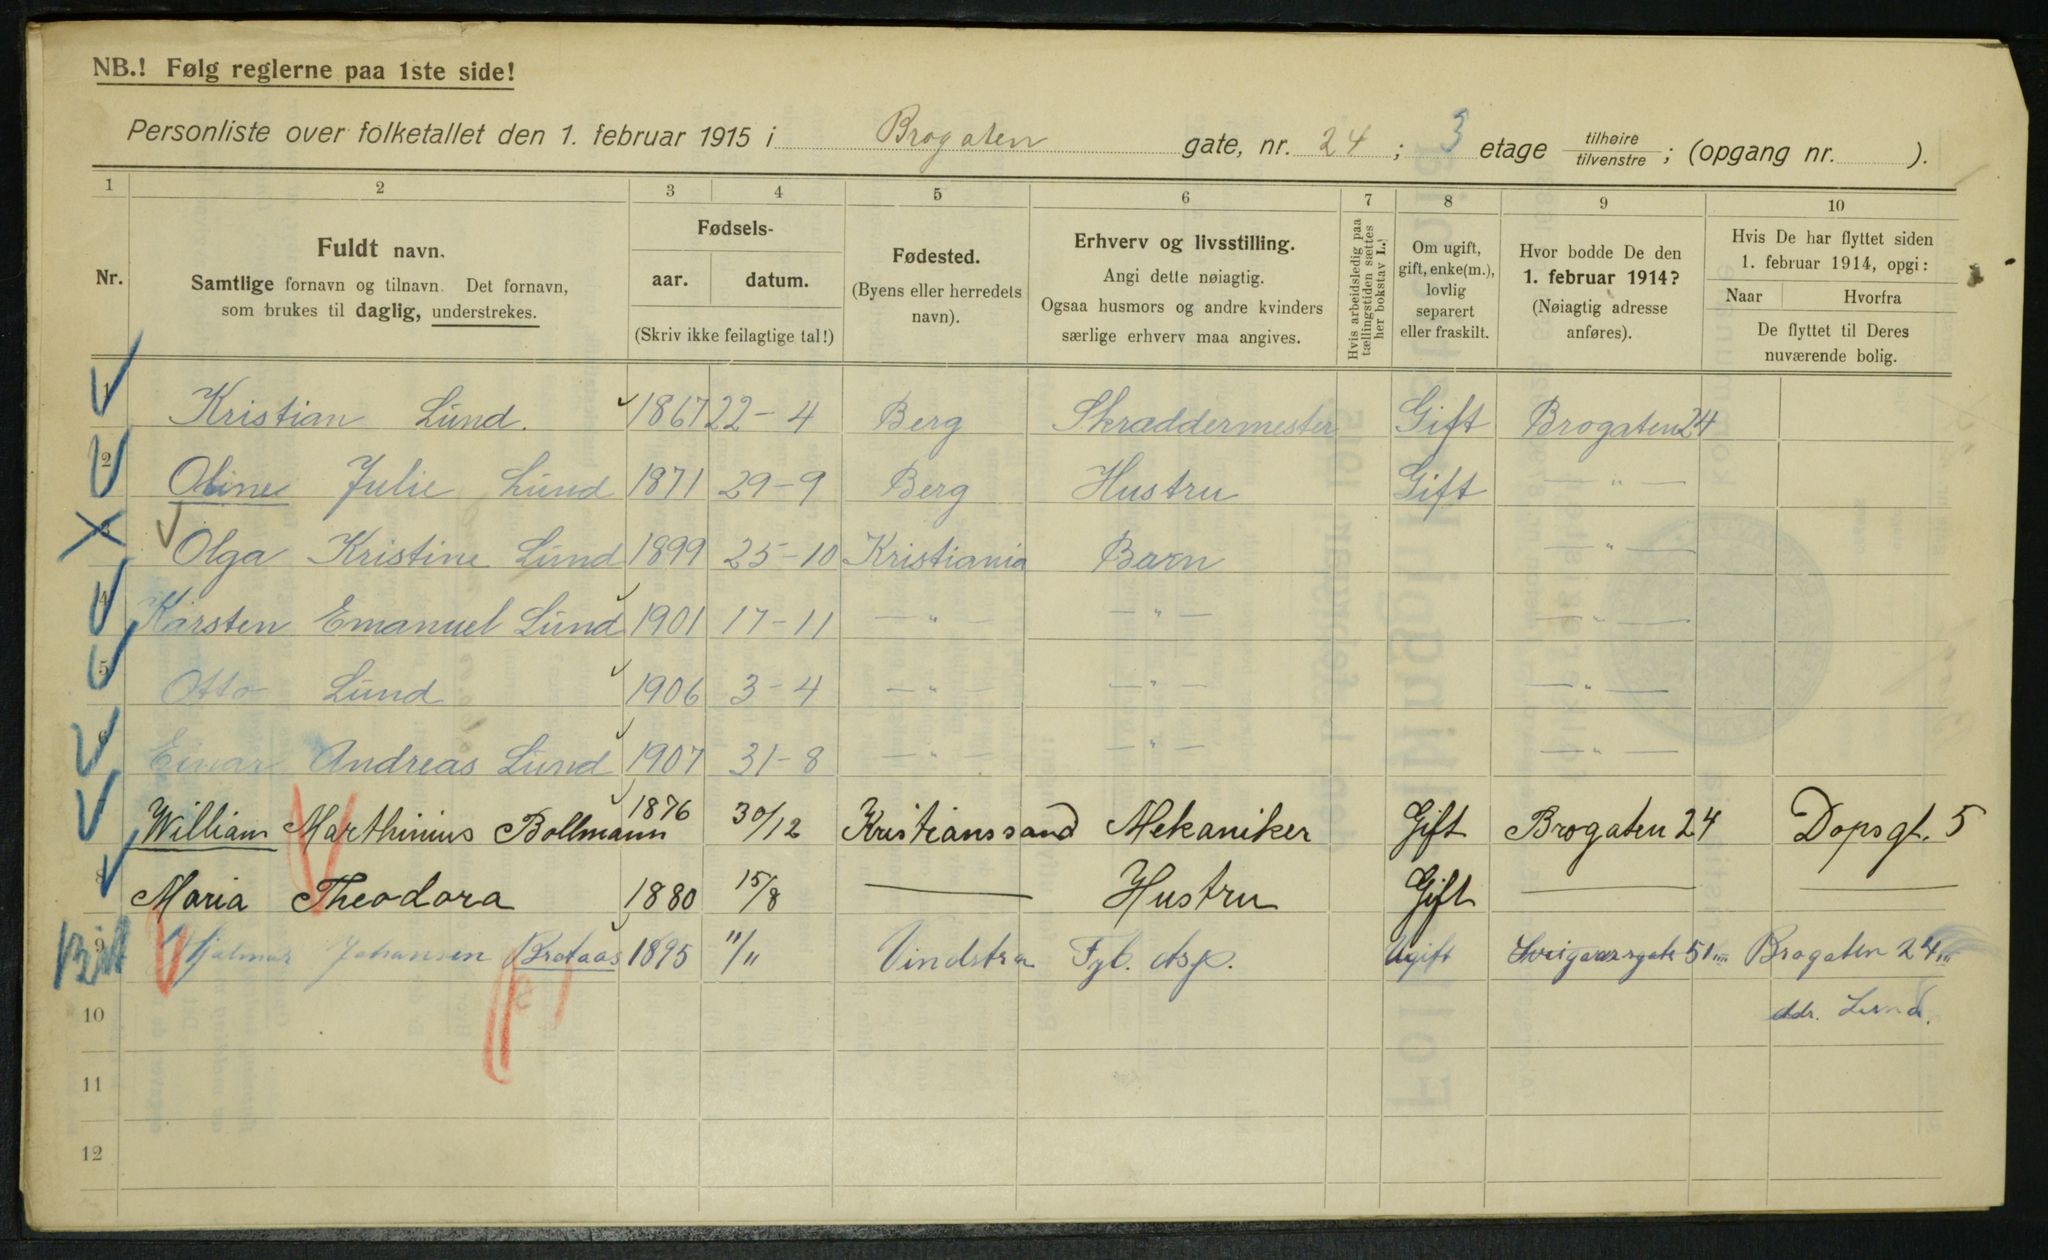 NB.! Følg reglerne paa 1ste side!
Personliste over folketallet den 1. februar 1915 i Brogaten gate, nr. 24; 3 etage tilhøire / tilvenstre; (opgang nr. ).
1 2 3 4 5 6 7 8 9 10
Nr.
Fuldt navn.
Samtlige fornavn og tilnavn. Det fornavn,
som brukes til daglig, understrekes.
Fødsels-
aar. datum.
(Skriv ikke feilagtige tal!)
Fødested.
(Byens eller herredets
navn).
Erhverv og livsstilling.
Angi dette nøiagtig.
Ogsaa husmors og andre kvinders
særlige erhverv maa angives.
Hvis arbeidsledig paa
tællingstiden sættes
her bokstav L.!
Om ugift,
gift, enke(m.),
lovlig
separert
eller fraskilt.
Hvor bodde De den
1. februar 1914?
(Nøiagtig adresse
anføres).
Hvis De har flyttet siden
1. februar 1914, opgi:
Naar Hvorfra
De flyttet til Deres
nuværende bolig.
1 Kristian Lund. 1867 22-4 Berg Skræddermester Gift Brogaten 24
2 Oline Julie Lund 1871 29-9 Berg Hustru Gift — " —
3 Olga Kristine Lund 1899 25-10 Kristiania Barn — " —
4 Karsten Emanuel Lund 1901 17-11 — " — — " — — " —
5 Otto Lund 1906 3-4 — " — — " — — " —
6 Einar Andreas Lund 1907 31-8 — " — — " — — " —
William Marthinius Bollmann 1876 30/12 Kristianssand Mekaniker Gift Brogaten 24 Dopsgt. 5
8 Maria Theodora 1880 15/8 — Hustru Gift — —
9 Hjalmar Johansen Brataas 1895 "/" Vindstra Fyb. Asp. Ugift 51 Brogaten 24
10 Lund.
11
12